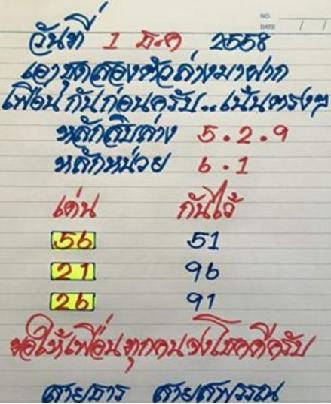 NO.
DATE / /
วันที่ 1 ธ.ค 2558
เอาชุดสองตัวล่างมาฝาก
เพื่อนกันก่อนครับ..เน้นตรงๆ
หลักสิบล่าง 5.2.9
หลักหน่วย 6.1
เด่น กันไว้
56 51
21 96
26 91
ขอให้เพื่อนทุกคนจงโชคดีครับ
สายธาร สายสุพรรณ